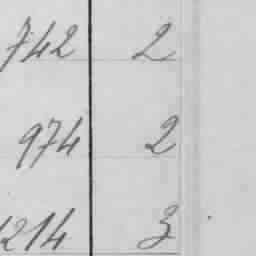 742 2
974 2
1214 3